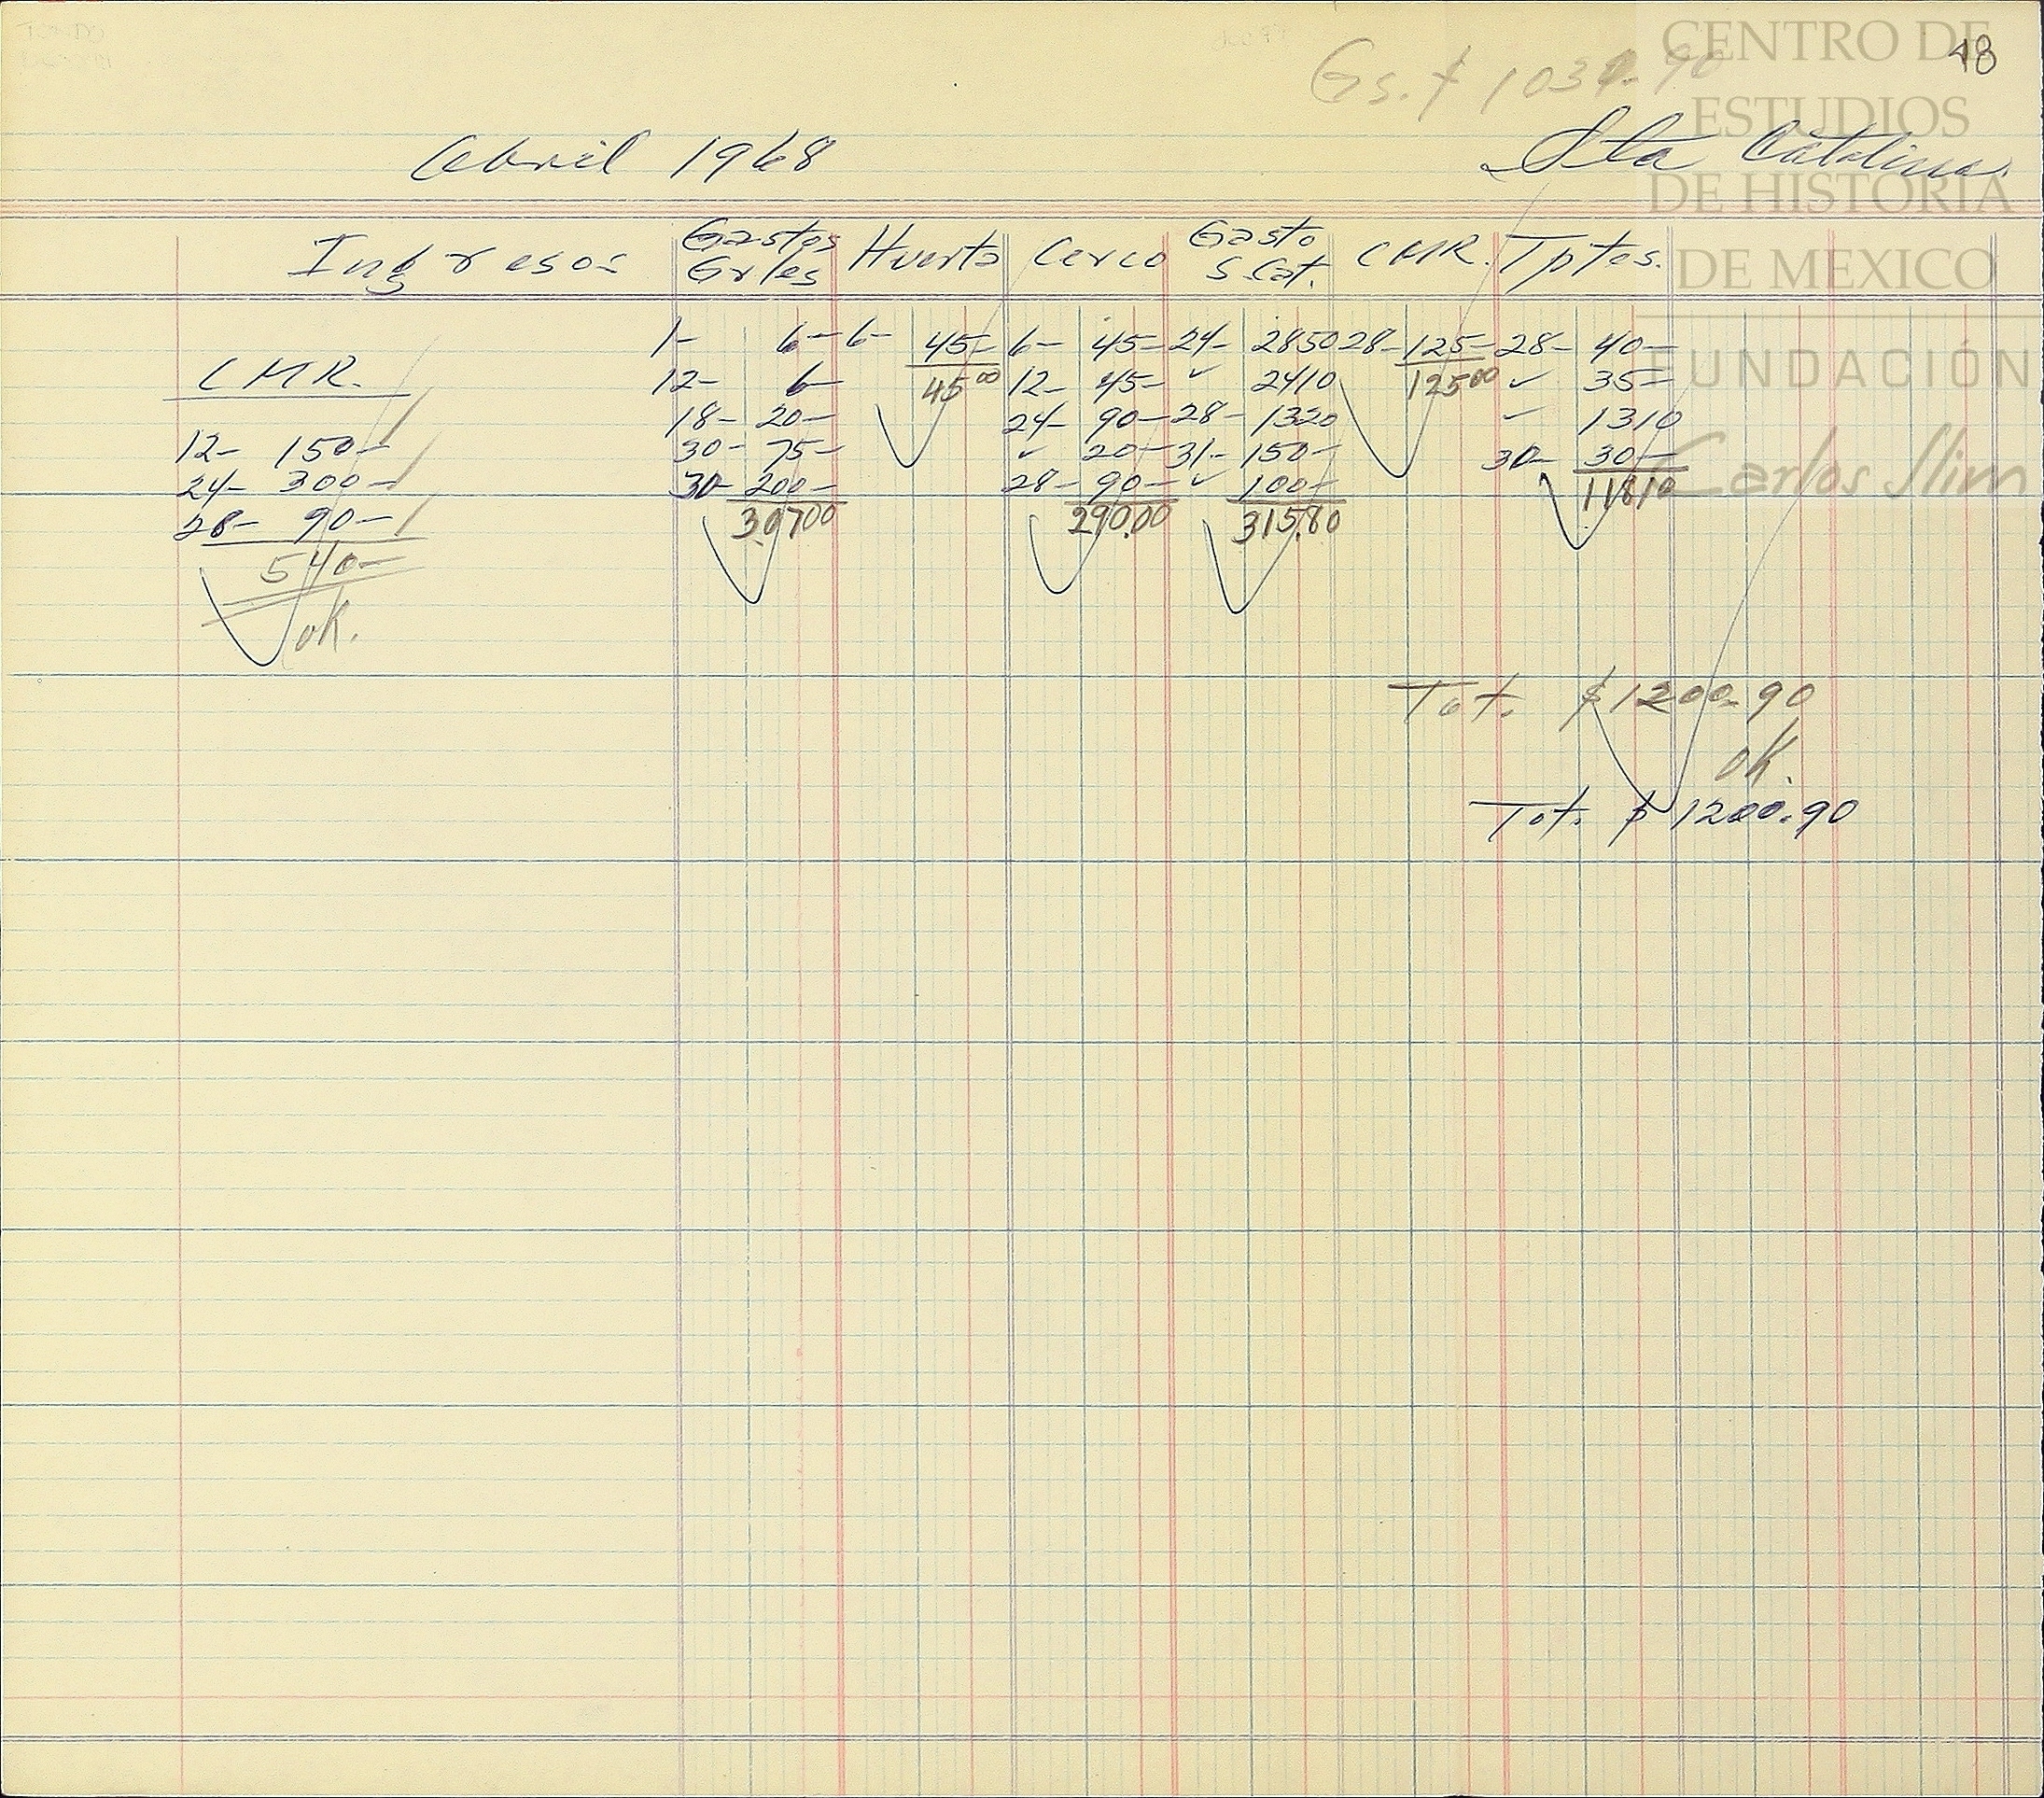 48
Gs. $ 1039.90
Abril 1968 Sta Catalina
Ingresos Gastos Grles Huerta Cerco Gasto S Cat. CMR. Tptes.
1- 6- 6- 45- 6- 45- 24- 2850 28- 125- 28- 40-
CMR. 12- 6- 45 00 12- 45- ✓ 2410 125 00 ✓ 35-
18- 20- 24- 90- 28- 1320 ✓ 1310
12- 150- 30- 75- ✓ 20- 31- 150- 30- 30-
24- 300- 30- 200- 28- 90- ✓ 100- 11810
28- 90- 30700 290.00 315.80
540-
ok.
Tot. $1200.90
ok.
Tot. $1200.90
CENTRO DE
ESTUDIOS
DE HISTORIA
DE MEXICO
FUNDACIÓN
Carlos Slim